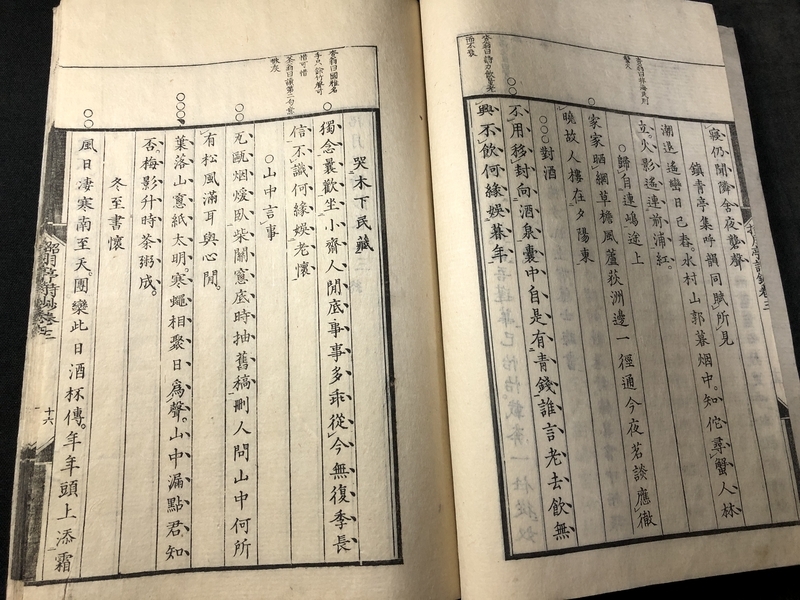 寢仍聞隣舍夜礱聲
鎮青亭集呼韻同賦所見
潮退遙巒日已舂。水村山郭暮烟中。知佗尋蟹人林
立。火影遙連前浦紅。
○歸自連嶋途上
○家家晒網草檐風蘆荻洲邊一徑通今夜茗談應徹
曉故人樓在夕陽東
○○○對酒
○○不用移封向酒泉囊中自是有青錢誰言老去飲無
興不飲何緣娛暮年
哭木下民藏
○獨念曩歡坐小齋人閒底事事多乖從今無復季長
信不識何緣娛老懷
○山中言事
○○瓦甌烟煖臥柴關窻底時抽舊稿刪人問山中何所
有松風滿耳與心閒。
○○○葉落山窻紙太明。寒蠅相聚日爲聲。山中漏點君知
否。梅影升時茶粥成。
冬至書懷
○○風日凄寒南至天。團欒此日酒杯傳。年年頭上添霜
十六